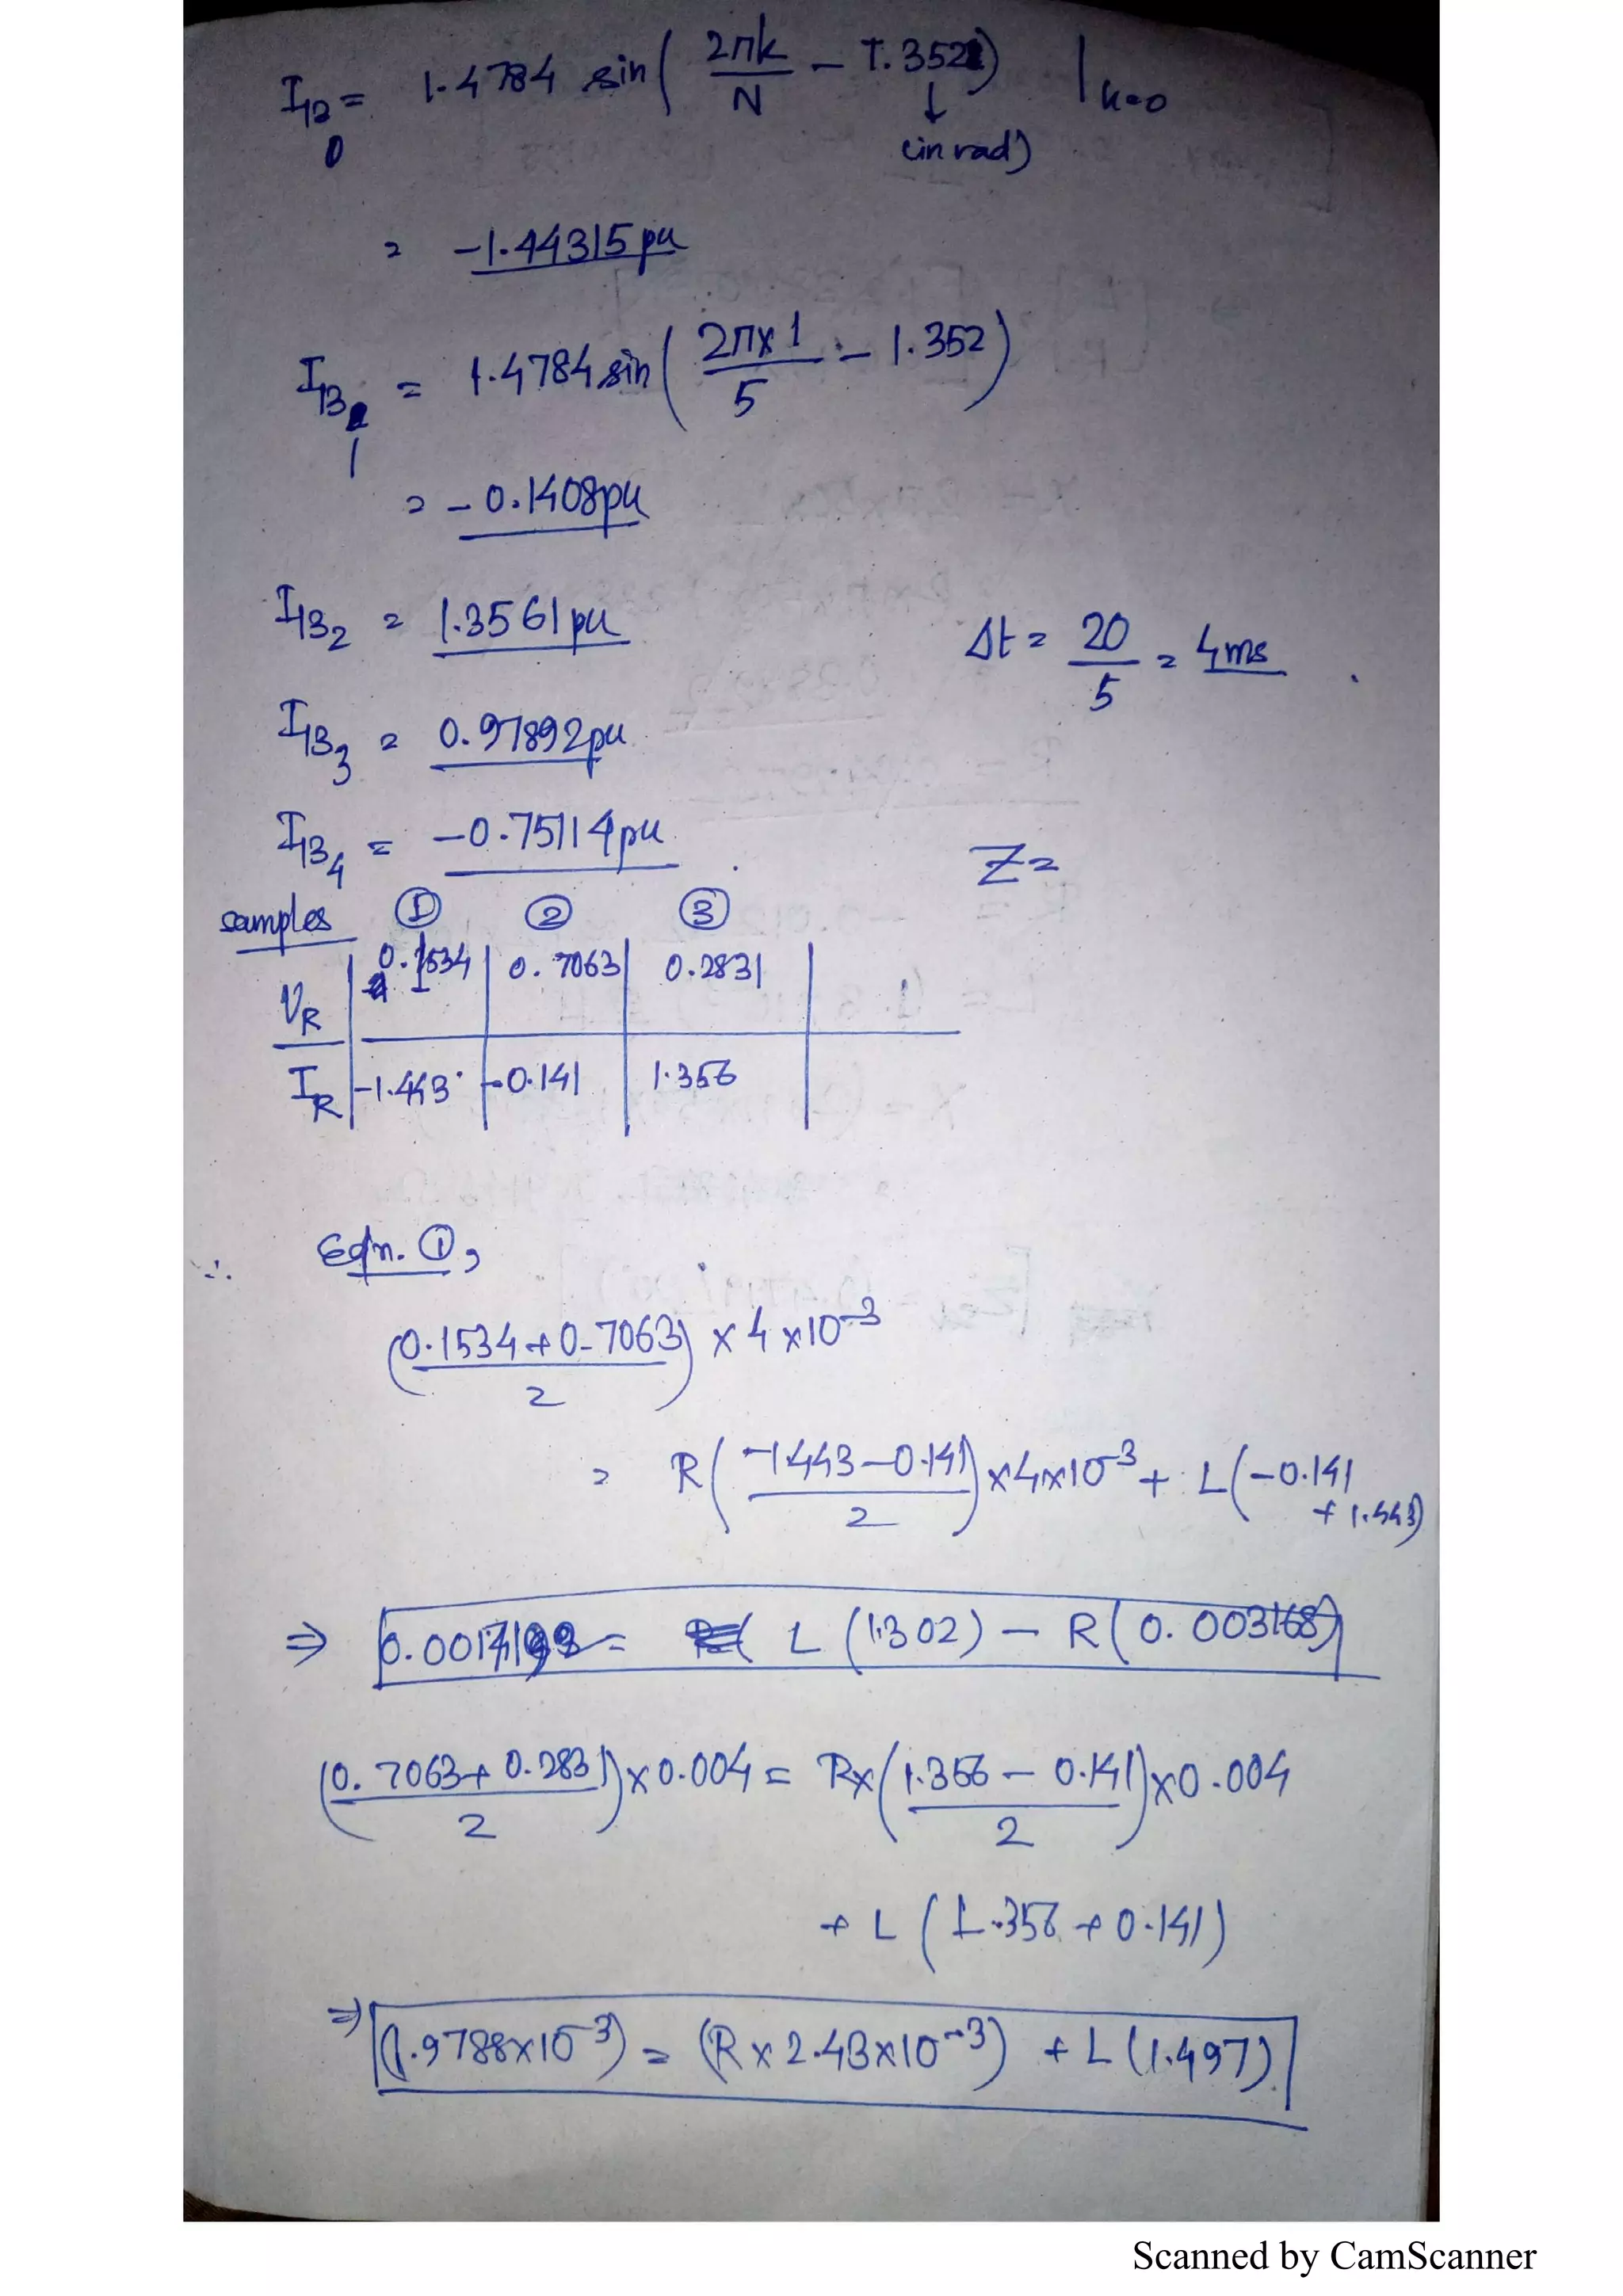 I₁₃₀ = 1.4784 sin( 2πk/N − 1.352 ) |ₖ₌₀
(in rad)
= −1.44315 pu
I₁₃₁ = 1.4784 sin( 2π×1/5 − 1.352 )
= −0.1408 pu
I₁₃₂ = 1.3561 pu
Δt = 20/5 = 4 ms
I₁₃₃ = 0.97892 pu
I₁₃₄ = −0.75114 pu
Z =
samples ① ② ③
V_R 0.1534 0.7063 0.2831
I_R −1.443 −0.141 1.356
∴ Eqn. ①,
(0.1534 + 0.7063)/2 × 4 × 10⁻³
= R( (−1.443 − 0.141)/2 ) × 4×10⁻³ + L(−0.141 + 1.443)
⇒ = L (1.302) − R (0.003168)
(0.7063 + 0.2831)/2 × 0.004 = R × ( (1.356 − 0.141)/2 ) × 0.004
+ L ( 1.356 + 0.141 )
⇒ (1.9788×10⁻³) = (R × 2.43×10⁻³) + L (1.497)
Scanned by CamScanner